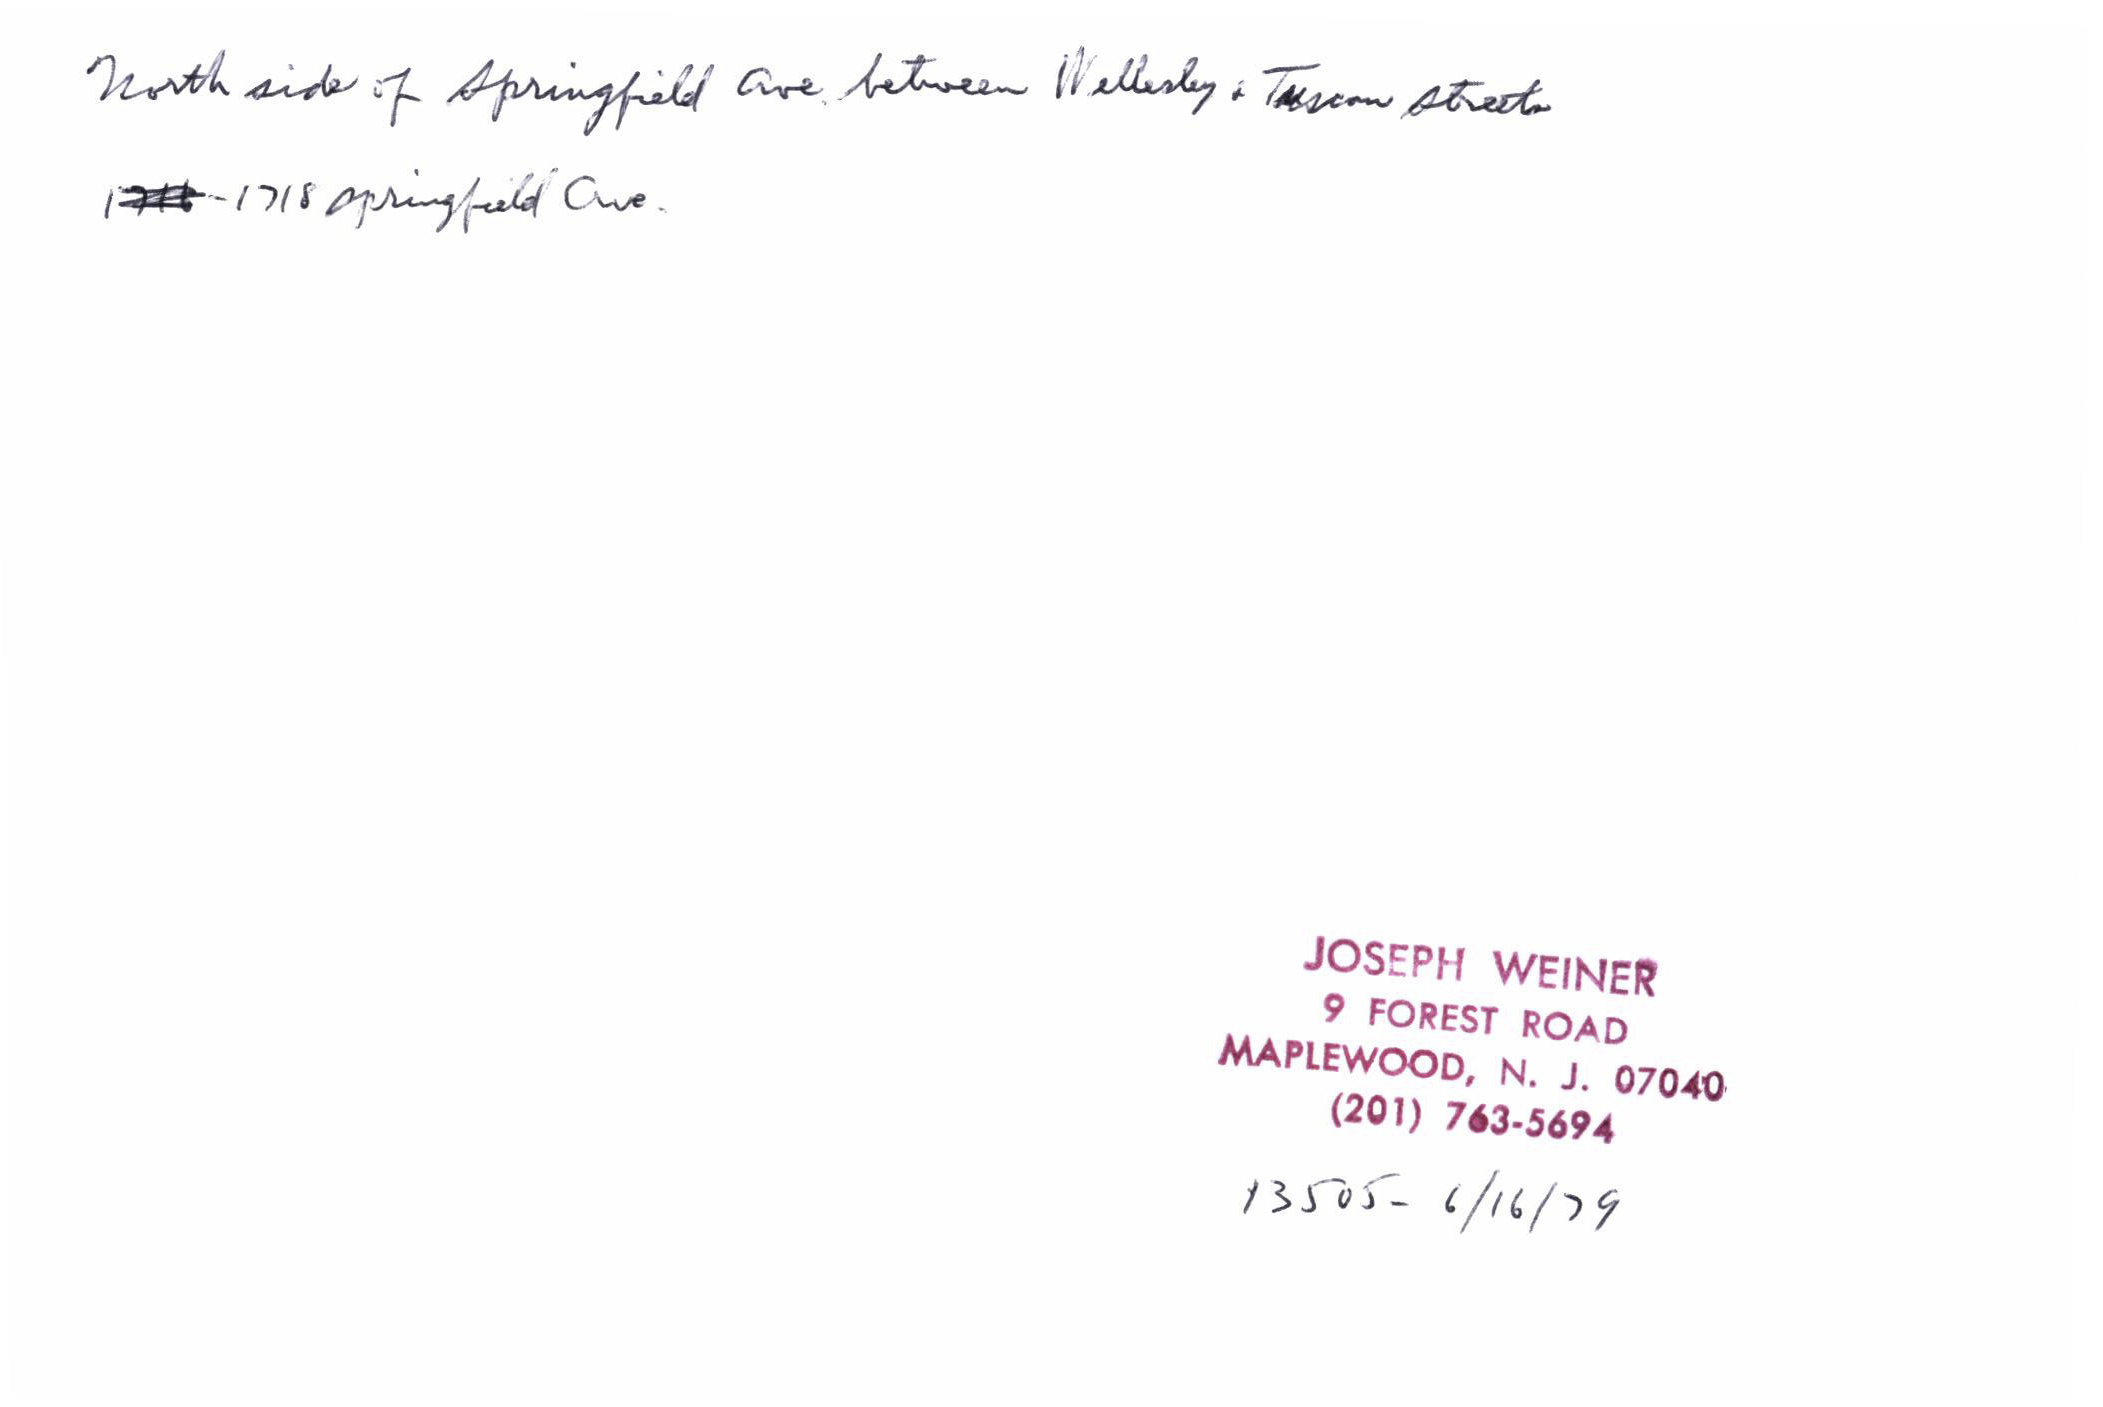 North side of Springfield Ave. between Wellesley & Tuscan Streets
-1718 Springfield Ave.
JOSEPH WEINER
9 FOREST ROAD
MAPLEWOOD, N. J. 07040
(201) 763-5694
13505- 6/16/79